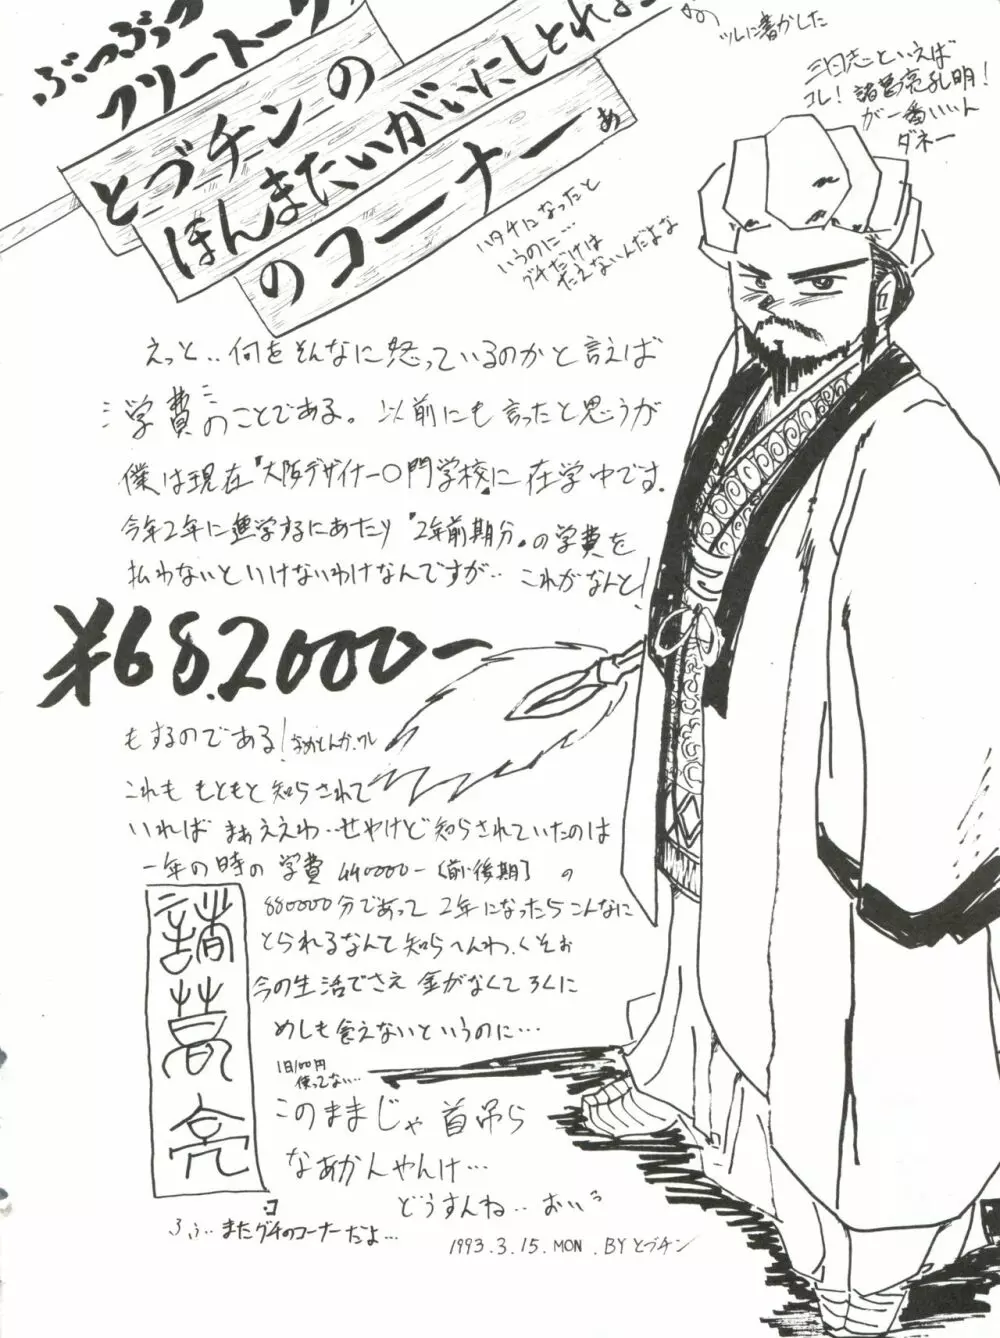 ぶつぶつ
フリートーク
とブチンの
ほんまたいがいにしとれよ
のコーナーぁ
ツレに書かした
三国志といえば
コレ！諸葛亮孔明！
が一番いいん
ダネー
ハタチになったと
いうのに…
グチだけは
たえないんだよな
えっと‥何をそんなに怒っているのかと言えば
学費のことである。以前にも言ったと思うが
僕は現在『大阪デザイナー〇門学校』に在学中です。
今年2年に進学するにあたり『2年前期分』の学費を
払わないといけないわけなんですが‥これがなんと！
¥682.000-
もするのである！
これももともと知らされて
いればまぁええわ‥せやけど知らされていたのは
一年の時の学費440000-［前・後期］の
880000分であって2年になったらこんなに
とられるなんて知らへんわ、くそぉ
今の生活でさえ金がなくてろくに
めしも食えないというのに…
1日100円
使ってない…
このままじゃ首吊ら
なあかんやんけ…
どうすんね‥おいっ
諸葛亮
ふぅ‥またグチのコーナーだよ…
1993.3.15.MON.BYとブチン